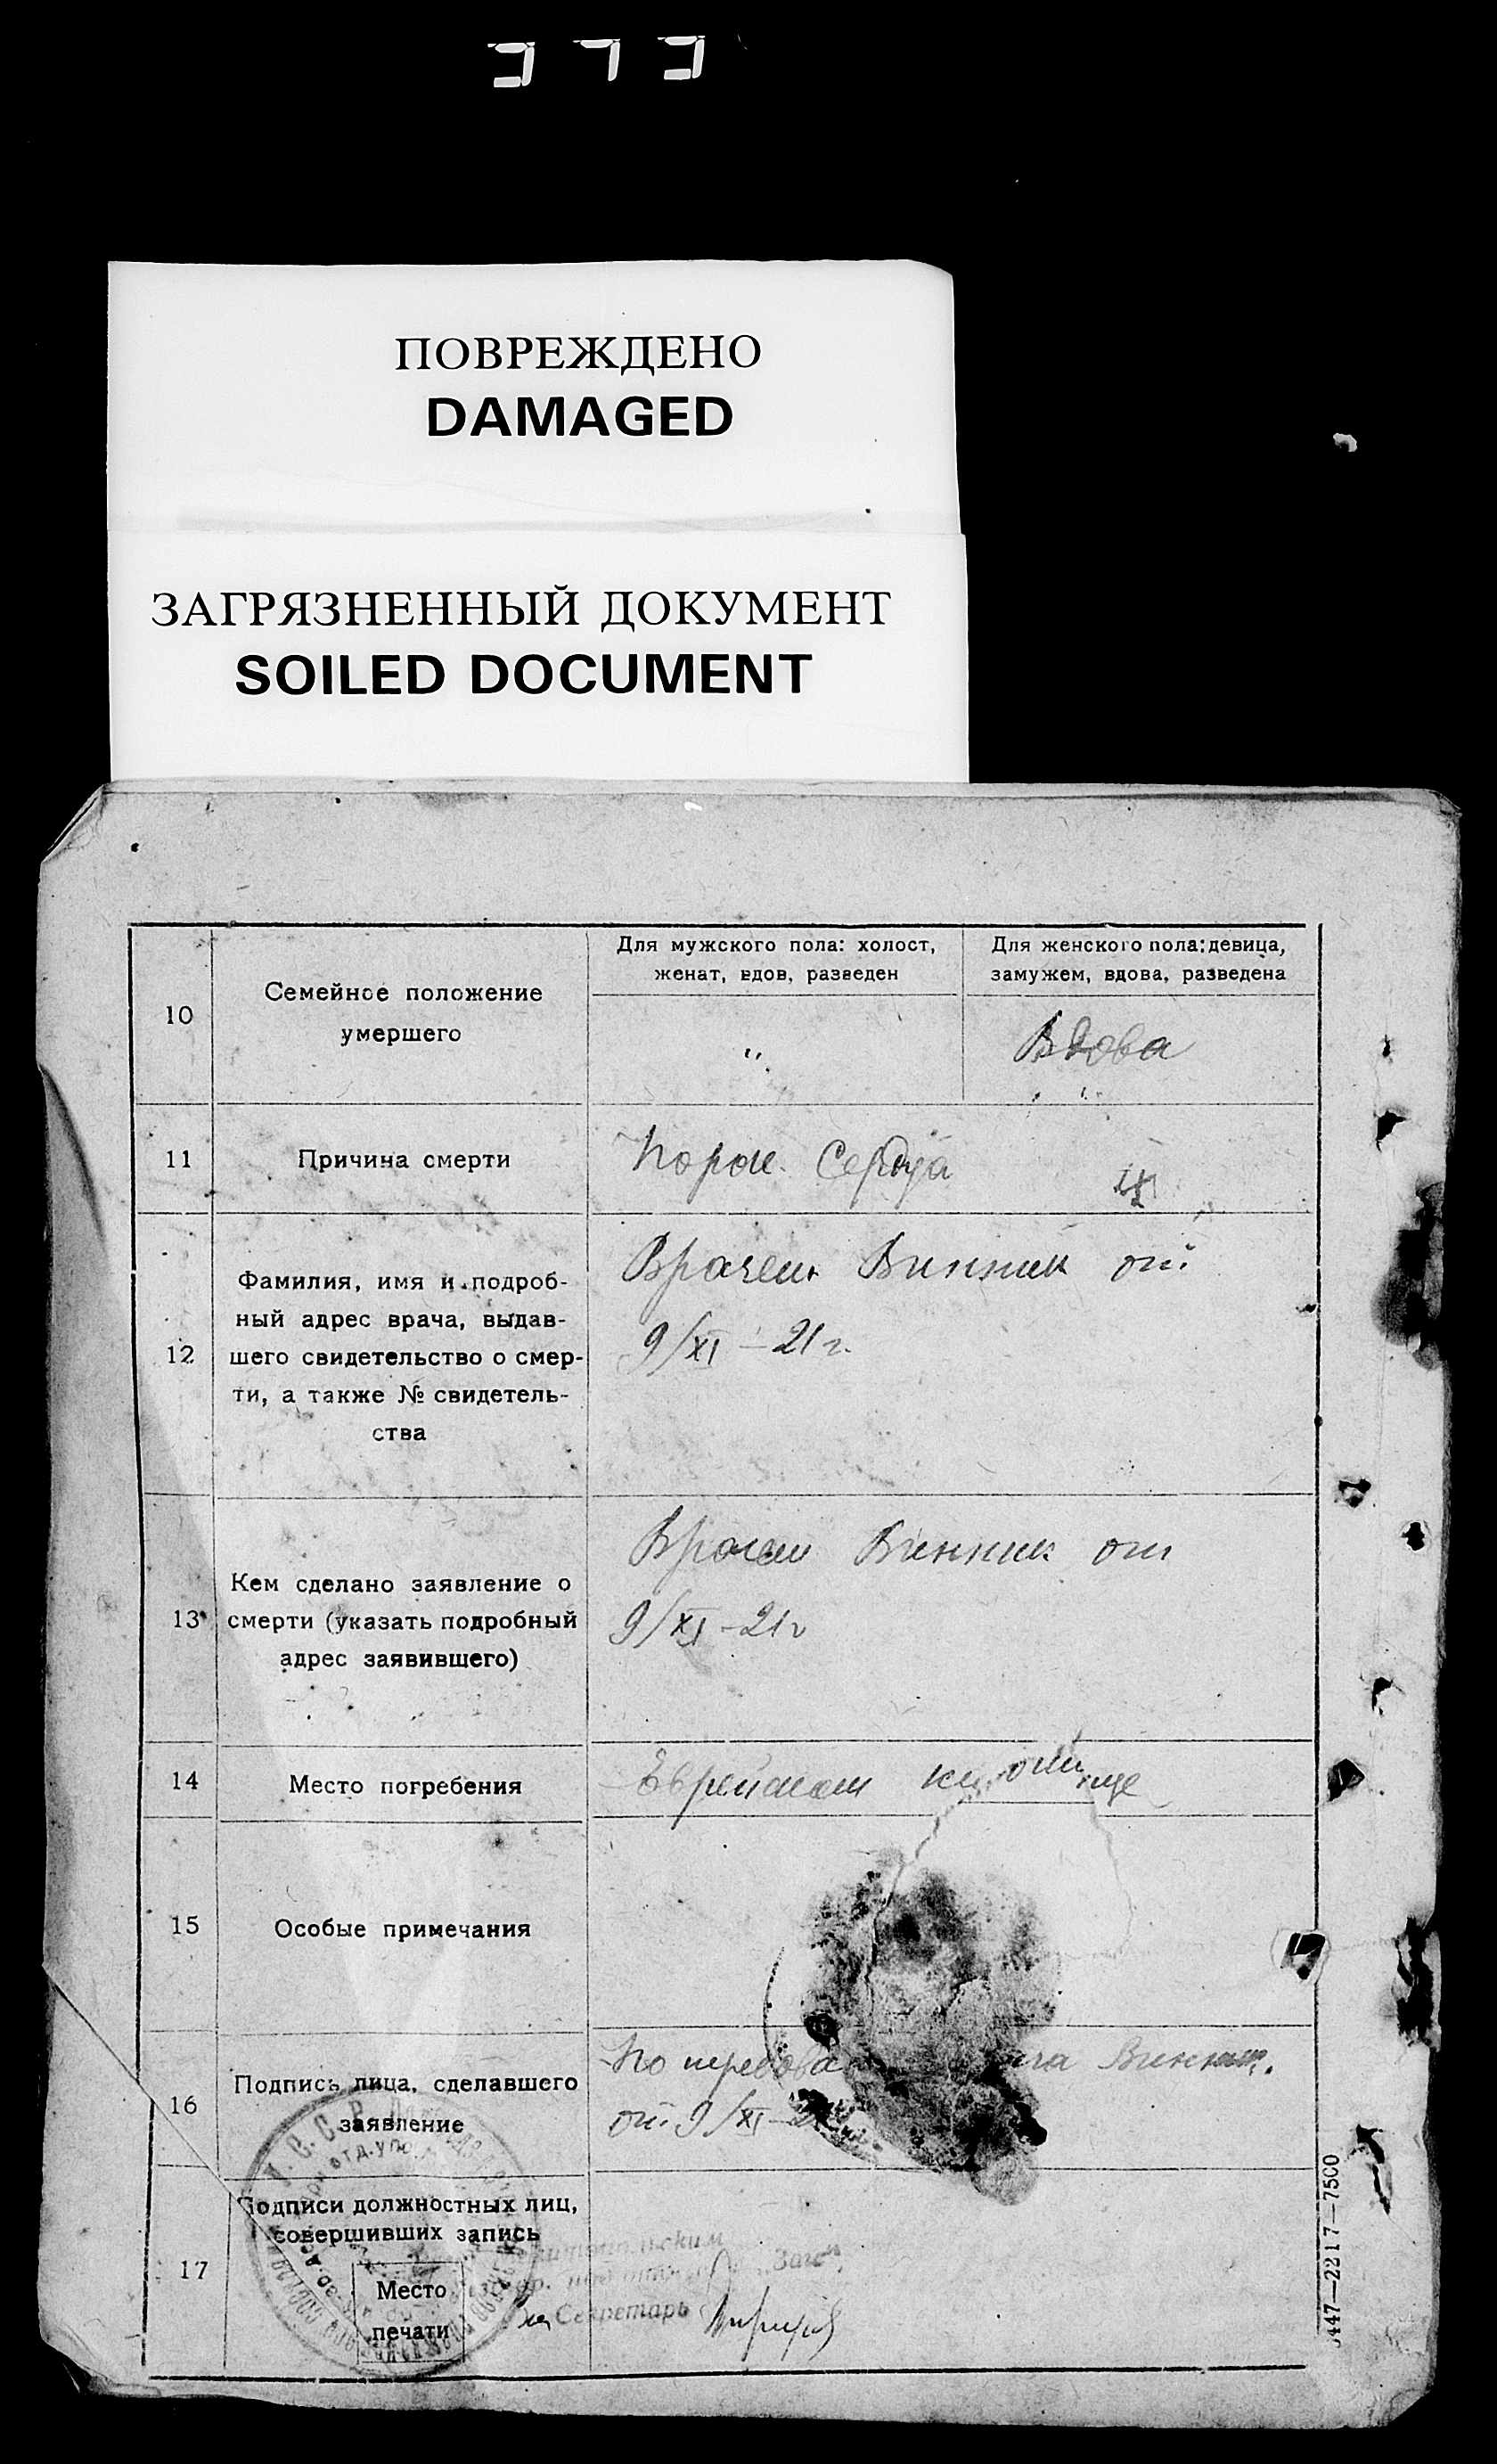 ПОВРЕЖДЕНО
DAMAGED
ЗАГРЯЗНЕННЫЙ ДОКУМЕНТ
SOILED DOCUMENT
10
Семейное положение
умершего
Для мужского пола: холост,
женат, вдов, разведен
"
Для женского пола: девица,
замужем, вдова, разведена
Вдова
11
Причина смерти
Порок Сердца
12
Фамилия, имя и подроб-
ный адрес врача, выдав-
шего свидетельство о смер-
ти, а также № свидетель-
ства
Врачем Винник от
9/XI - 21 г.
13
Кем сделано заявление о
смерти (указать подробный
адрес заявившего)
Врачем Винник от
9/XI - 21 г
14
Место погребения
Еврейском кладбище
15
Особые примечания
16
Подпись лица, сделавшего
заявление
По Винник.
от 9/XI - 2
17
Подписи должностных лиц,
совершивших запись
Место
печати
Секретарь
447—2217—7500